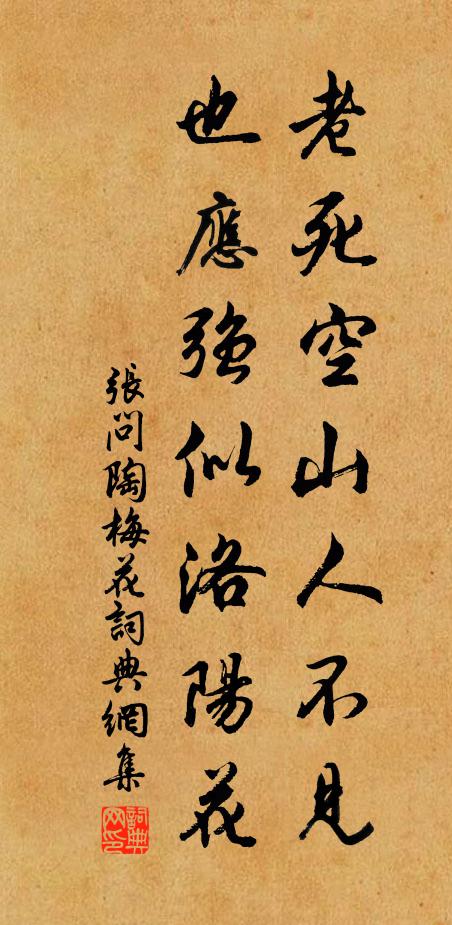 老死空山人不見
也應強似洛陽花
張問陶梅花詞典網集
詞典網印